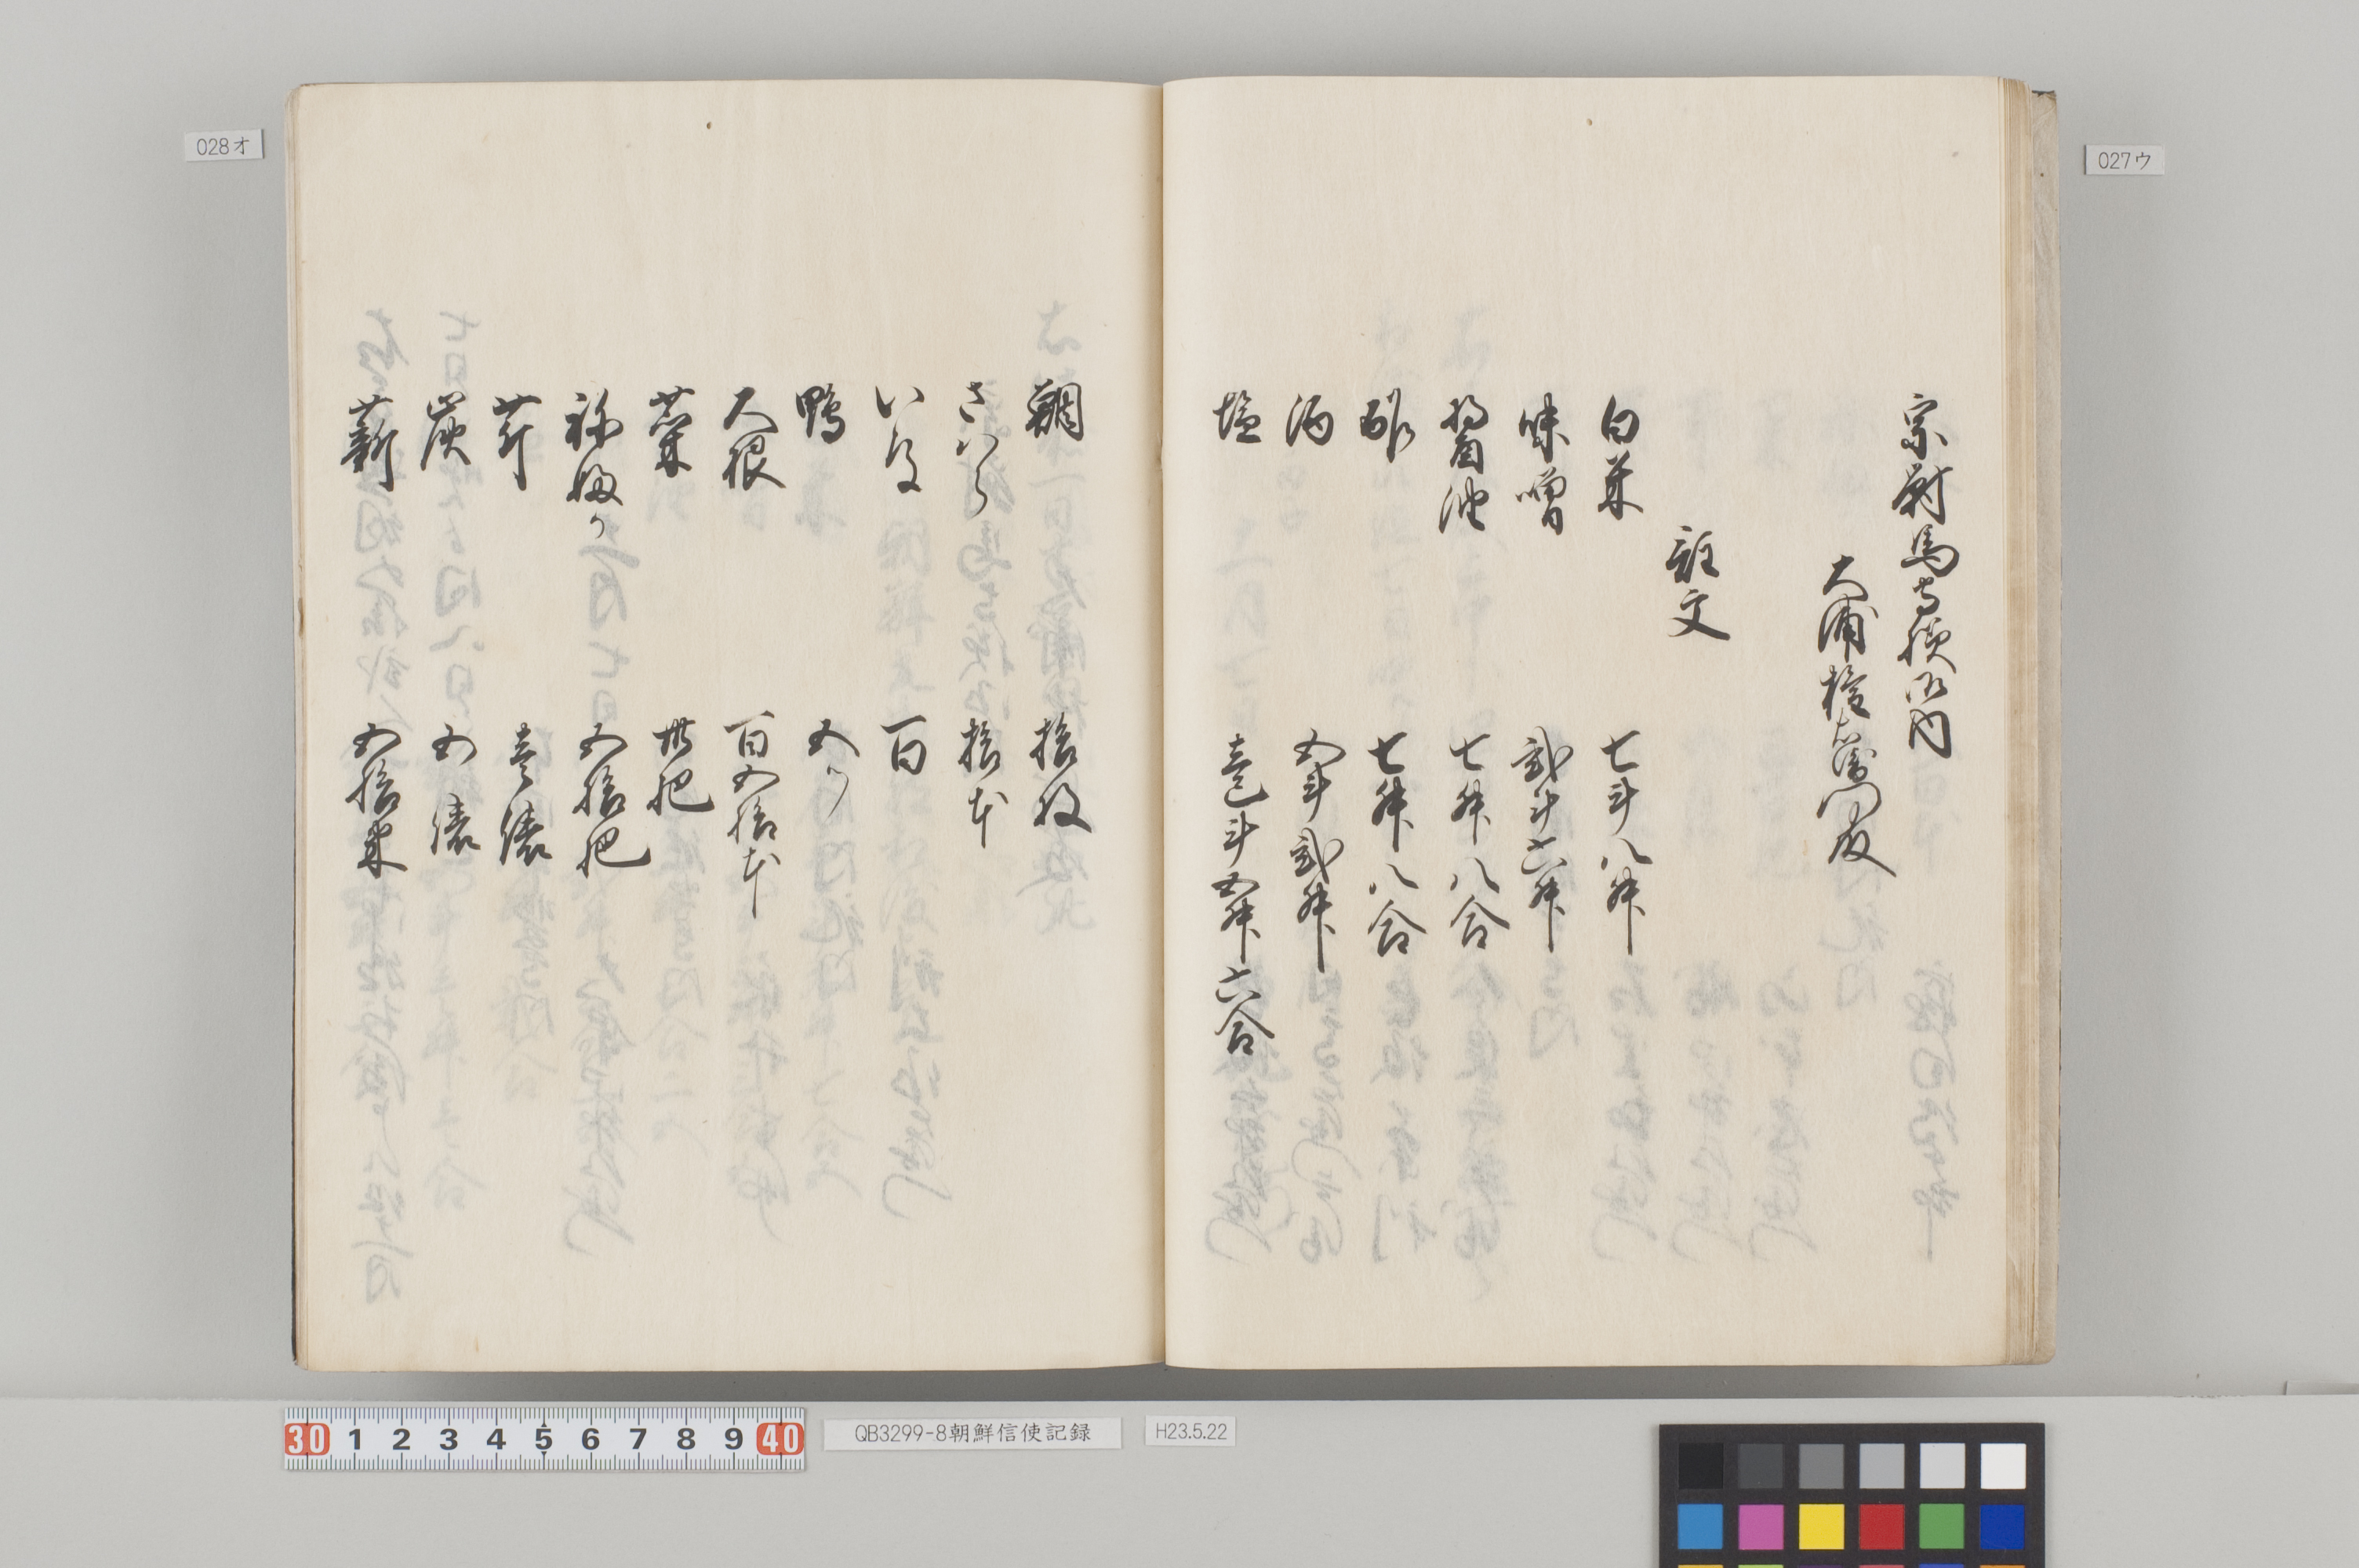 027ウ
宗対馬守様御内
大浦権右衛門殿
註文
白米 七斗八升
味噌 弐斗六升
醤油 七升八合
酢 七升八合
酒 五斗弐升
塩 壱斗五升六合
028オ
鯛 拾枚
さハら 拾本
いな 百
鴨 五ツ
大根 百五拾本
菜 卅把
祢ふか 五拾把
芋 壱俵
炭 五俵
薪 五拾束
30 1 2 3 4 5 6 7 8 9 40
QB3299-8朝鮮信使記録
H23.5.22